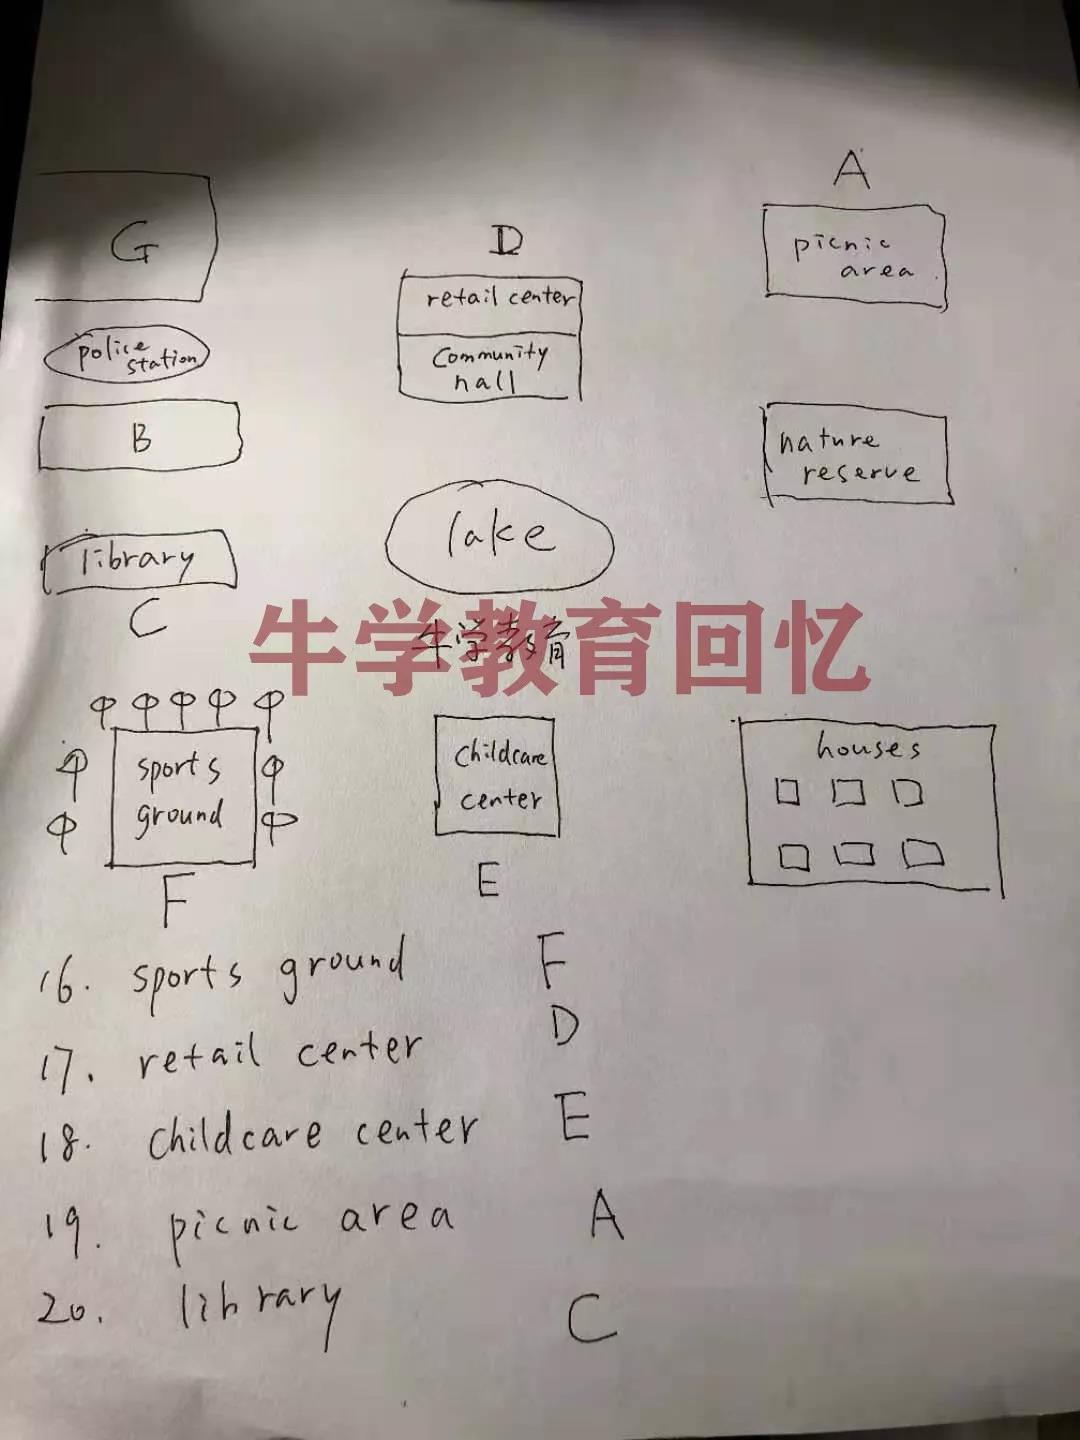 A
G
D
picnic
area
retail center
police
station
community
hall
B
nature
reserve
lake
library
C
牛学教育回忆
牛学教育
sports
ground
childcare
center
houses
F
E
16. sports ground F
17. retail center D
18. childcare center E
19. picnic area A
20. library C